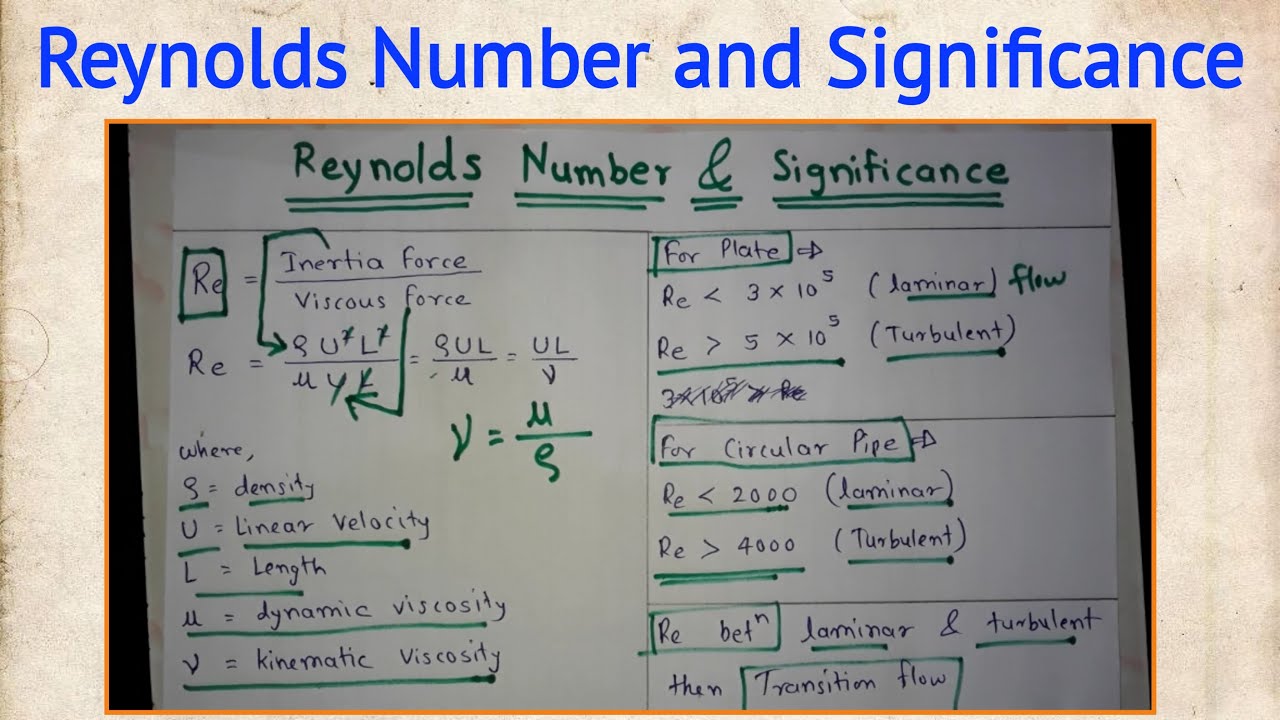 Reynolds Number and Significance
Reynolds Number & Significance
Re = Inertia force / Viscous force
Re = ρU²L² / μUL = ρUL / μ = UL / ν
ν = μ / ρ
where,
ρ = density
U = Linear velocity
L = Length
μ = dynamic viscosity
ν = kinematic viscosity
For Plate ⇒
Re < 3 × 10⁵ (laminar) flow
Re > 5 × 10⁵ (Turbulent)
For Circular Pipe ⇒
Re < 2000 (laminar)
Re > 4000 (Turbulent)
Re betⁿ laminar & turbulent
then Transition flow